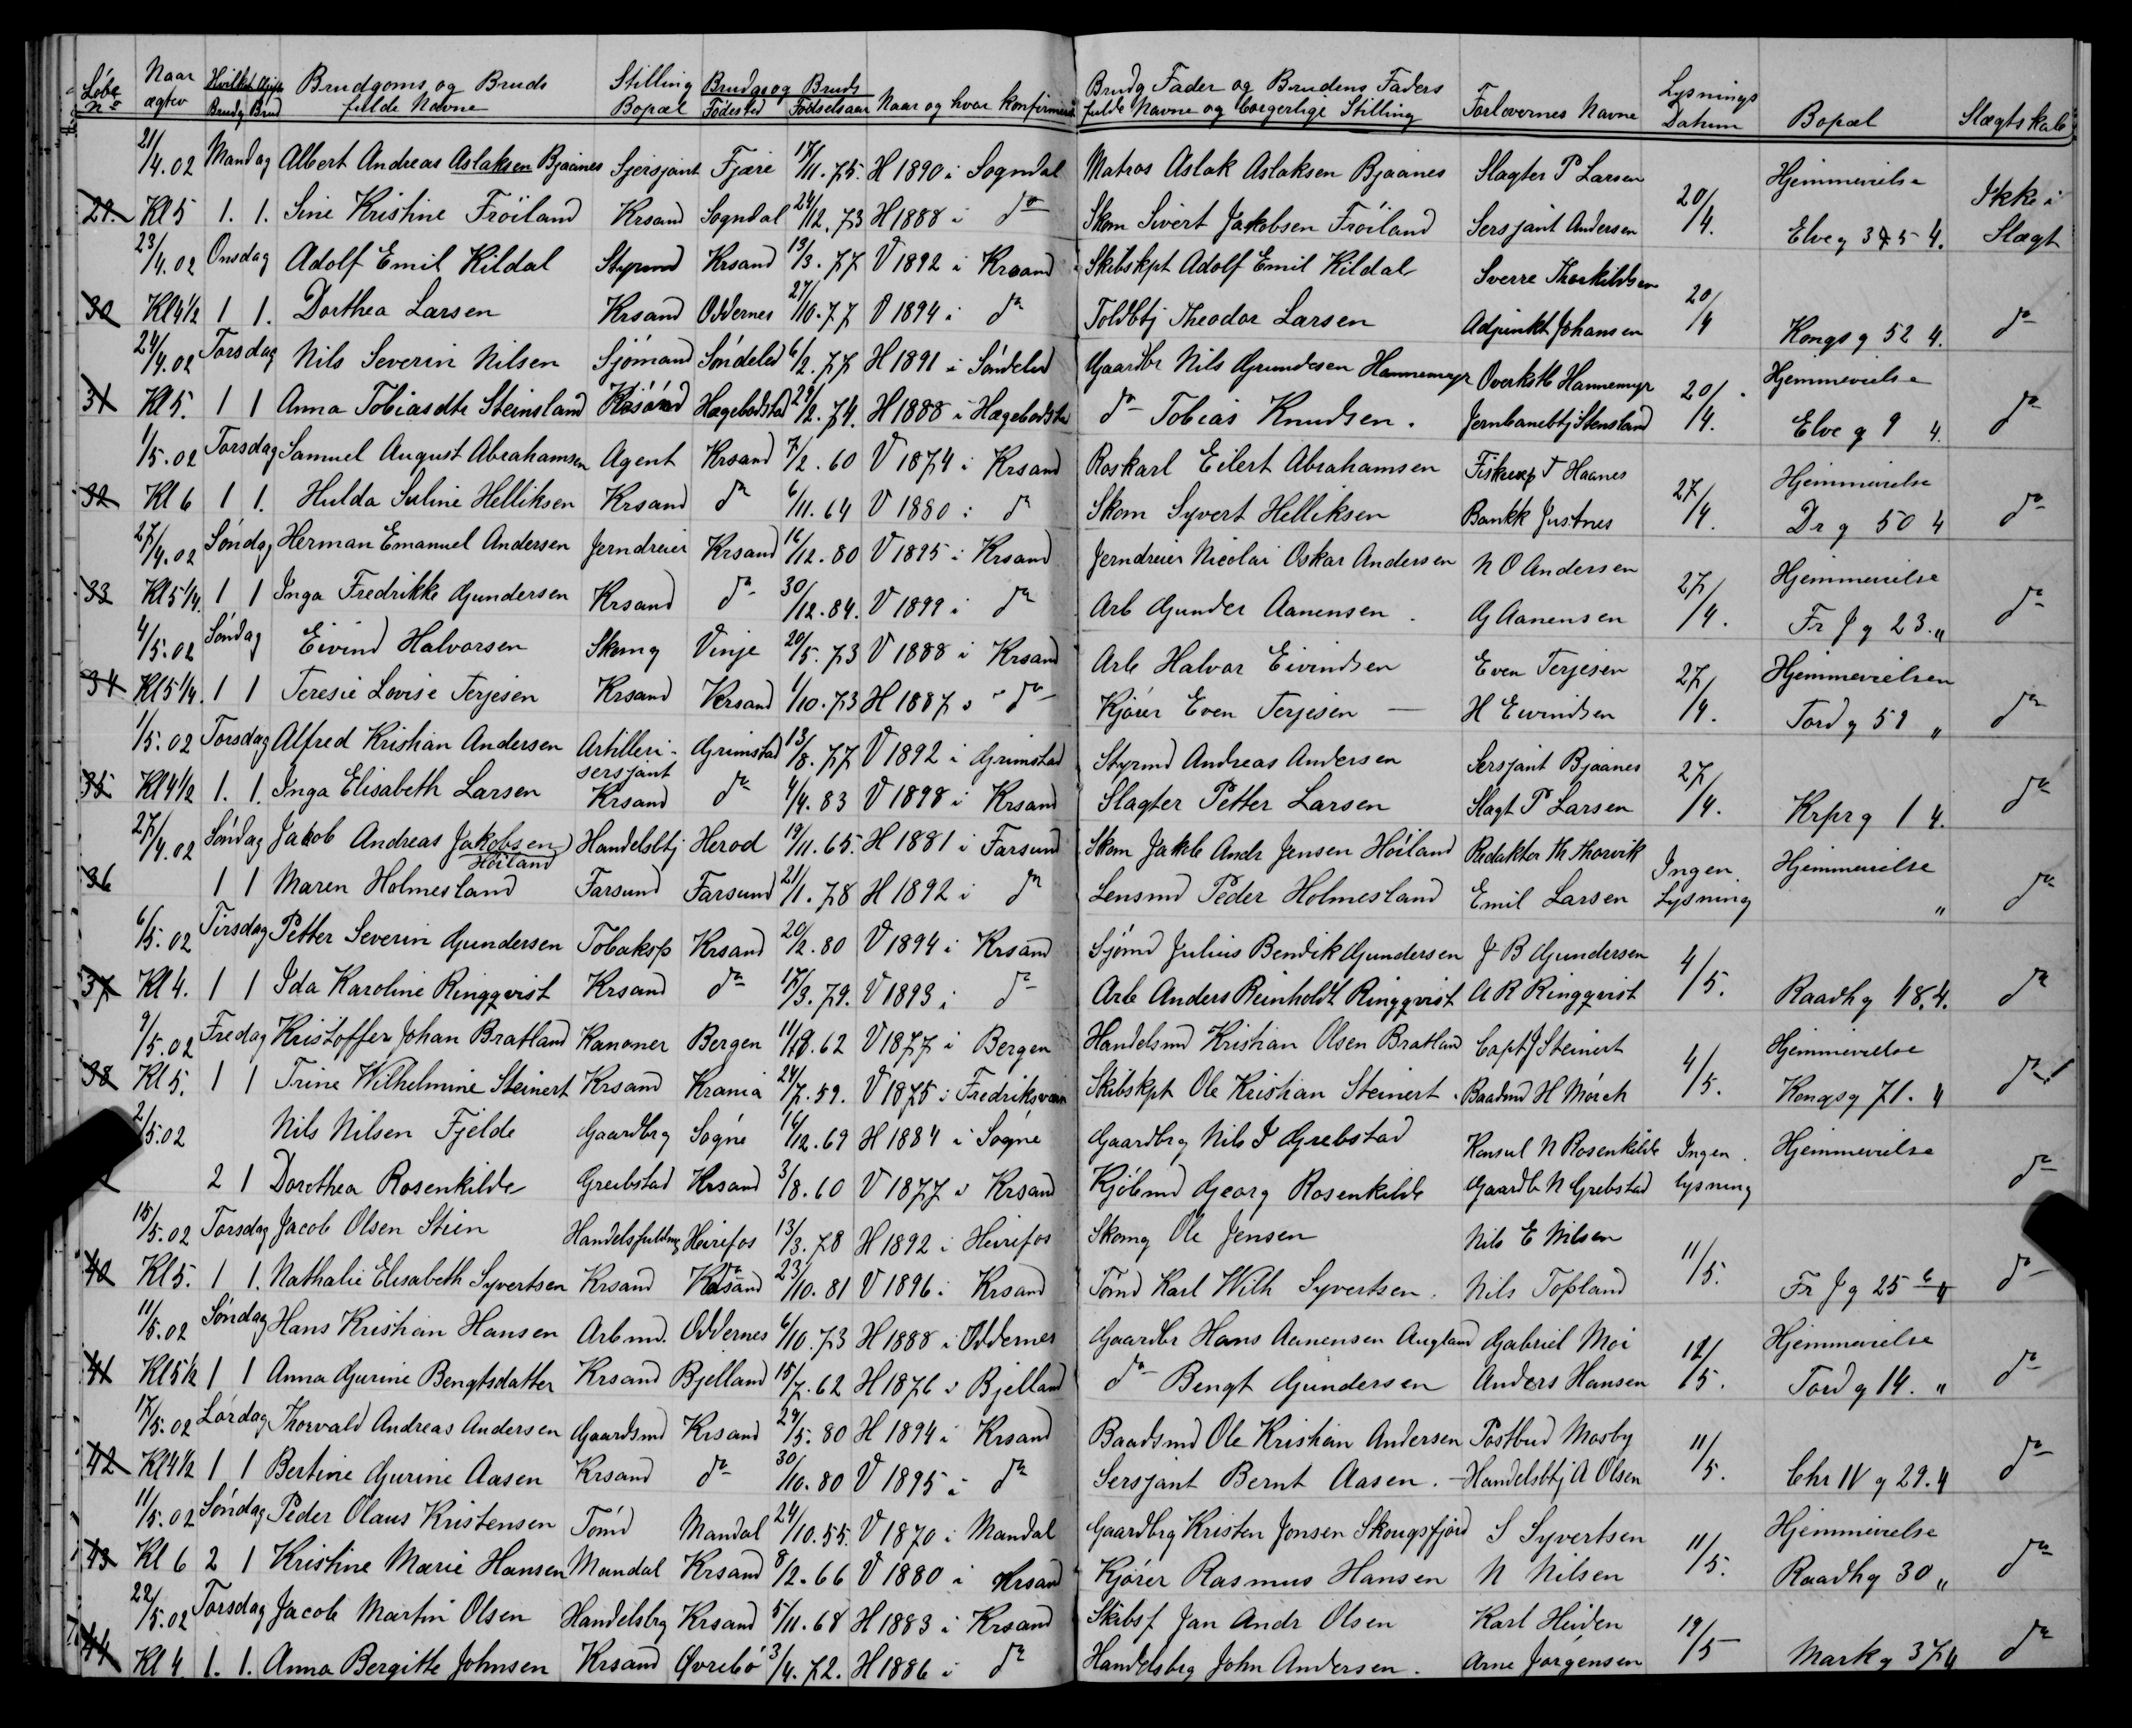 Løbe Naar Hvilket Ægtesk Brudgoms og Bruds Stilling Brudgs og Bruds Naar og hvor konfirmeret Brudg Fader og Brudens Faders Forlovernes Navne Lysnings Bopæl Slægtskab
No ægtev Brudg Brud fulde Navne Bopæl Fødested Fødselsaar fulde Navne og borgerlige Stilling Datum
21/4.02 Mandag Albert Andreas Aslaksen Bjaanes Sjersjant Fjære 17/11.75. H 1890 i Sogndal Matros Aslak Aslaksen Bjaanes Slagter P Larsen Hjemmevielse
29. Kl 5 1. 1. Sine Kristine Frøiland Krsand Sogndal 24/12.73 H 1888 i do Skom Sivert Jakobsen Frøiland Sersjant Andersen 20/4. Elveg 35 4. Ikke i Slægt
23/4.02 Onsdag Adolf Emil Kildal Styrmd Krsand 13/3.77 V 1892 i Krsand Skibskpt Adolf Emil Kildal Sverre Thorkildsen
30 Kl 4½ 1 1. Dorthea Larsen Krsand Oddernes 27/10.77 V 1894 i do Toldbtj Theodor Larsen Adjunkt Johansen 20/4 Kongs g 52 4. do
24/4.02 Torsdag Nils Severin Nilsen Sjømand Søndeled 6/2.77 H 1891 i Søndeled Gaardbr Nils Grundesen Hannemyr Overkstb Hannemyr Hjemmevielse
31 Kl 5. 1 1 Anna Tobiasdtr Steinsland Hægebostad 29/2.74. H 1888 i Hægebostd do Tobias Knudsen. Jernbanebtj Stensland 20/4. Elve g 9 4. do
1/5.02 Torsdag Samuel August Abrahamsen Agent Krsand 7/2.60 V 1874 i Krsand Roskarl Eilert Abrahamsen Fiskexp T Haanes Hjemmevielse
32 Kl 6 1 1. Hulda Suline Helliksen Krsand do 6/11.64 V 1880 i do Skom Syvert Helliksen Bankk Justnes 27/4. Dr g 50 4 do
27/4.02 Søndag Herman Emanuel Andersen Jerndreier Krsand 16/12.80 V 1895 i Krsand Jerndreier Nicolai Oskar Andersen N O Andersen Hjemmevielse
33 Kl 5¼. 1 1 Inga Fredrikke Gundersen Krsand do 30/12.84. V 1899 i do Arb Gunder Aanensen. G Aanensen 27/4. Fr J g 23. " do
4/5.02 Søndag Eivind Halvorsen Skomg Vinje 20/5.73 V 1888 i Krsand Arb Halvor Eivindsen Even Terjesen Hjemmevielsen
34 Kl 5¼. 1 1 Teresie Lovise Terjesen Krsand Krsand 1/10.73 H 1887 i do Kjører Even Terjesen — H Eivindsen 27/4. Tord g 59 " do
1/5.02 Torsdag Alfred Kristian Andersen Artilleri-sersjant Grimstad 13/8.77 V 1892 i Grimstad Styrmd Andreas Andersen Sersjant Bjaanes
35 Kl 4½ 1. 1. Inga Elisabeth Larsen Krsand do 4/4.83 V 1898 i Krsand Slagter Petter Larsen Slagt P Larsen 27/4. Krpr g 1 4. do
27/4.02 Søndag Jakob Andreas Jakobsen Høiland Handelsbtj Herod 19/11.65. H 1881 i Farsund Skom Jakob Andr Jensen Høiland Redaktør Th Thorvik Hjemmevielse
36 1 1 Maren Holmesland Farsund Farsund 21/1.78 H 1892 i do Lensmd Peder Holmesland Emil Larsen Ingen Lysning " do
6/5.02 Tirsdag Petter Severin Gundersen Tobaksp Krsand 20/2.80 V 1894 i Krsand Sjømd Julius Bendik Gundersen J B Gundersen
37 Kl 4. 1 1 Ida Karoline Ringqvist Krsand do 17/3.79. V 1893 i do Arb Anders Reinholdt Ringqvist A R Ringqvist 4/5. Raadh g 48. 4. do
9/5.02 Fredag Kristoffer Johan Bratland Kanoner Bergen 11/8.62 V 1877 i Bergen Handelsmd Kristian Olsen Bratland Capt J Steinert Hjemmevielse
38 Kl 5. 1 1 Trine Wilhelmine Steinert Krsand Krania 24/7.59. V 1875 i Fredriksværn Skibskpt Ole Kristian Steinert. Baadsmd H Mørch 4/5. Kongs g 71. 4 do
2/5.02 Nils Nilsen Fjelde Gaardbrg Søgne 16/12.69 H 1884 i Søgne Gaardbrg Nils J Grebstad Konsul N Rosenkilde Ingen. Hjemmevielse
2 1 Dorothea Rosenkilde Grebstad Krsand 3/8.60 V 1877 i Krsand Kjøbmd Georg Rosenkilde Gaardb N Grebstad lysning do
15/5.02 Torsdag Jacob Olsen Stien Handelsfuldmg Heirefos 13/3.78 H 1892 i Heirefos Skomg Ole Jensen Nils E Nilsen
40 Kl 5. 1 1. Nathalie Elisabeth Syvertsen Krsand Krsand 23/10.81 V 1896 i Krsand Tømd Karl Wilh Syvertsen. Nils Topland 11/5. Fr J g 25 b 4 do
11/5.02 Søndag Hans Kristian Hansen Arbmd. Oddernes 6/10.73 H 1888 i Oddernes Gaardbr Hans Aanensen Augland Gabriel Moi Hjemmevielse
41 Kl 5½ 1 1 Anna Gurine Bengtsdatter Krsand Bjelland 15/7.62 H 1876 i Bjelland do Bengt Gundersen Anders Hansen 11/5. Tord g 14. " do
17/5.02 Lørdag Thorvald Andreas Andersen Gaardsmd Krsand 29/5.80 H 1894 i Krsand Baadsmd Ole Kristian Andersen Postbud Mosby
42 Kl 4½ 1 1 Bertine Gurine Aasen Krsand do 30/10.80 V 1895 i do Sersjant Bernt Aasen. Handelsbtj A Olsen 11/5. Chr IV g 29. 4 do
11/5.02 Søndag Peder Olaus Kristensen Tømd Mandal 24/10.55. V 1870 i Mandal Gaardbrg Kristen Jonsen Skougsfjord S Syvertsen Hjemmevielse
43 Kl 6 2 1 Kristine Marie Hansen Mandal Krsand 8/2.66 V 1880 i Krsand Kjører Rasmus Hansen N Nilsen 11/5. Raadh g 30 " do
22/5.02 Torsdag Jacob Martin Olsen Handelsbrg Krsand 5/11.68 H 1883 i Krsand Skibsf Jan Andr Olsen Karl Heiden
44 Kl 4 1. 1. Anna Bergitte Johnsen Krsand Øvrebø 3/4.72. H 1886 i do Handelsbrg John Andersen. Arne Jørgensen 19/5 Mark g 37 4 do